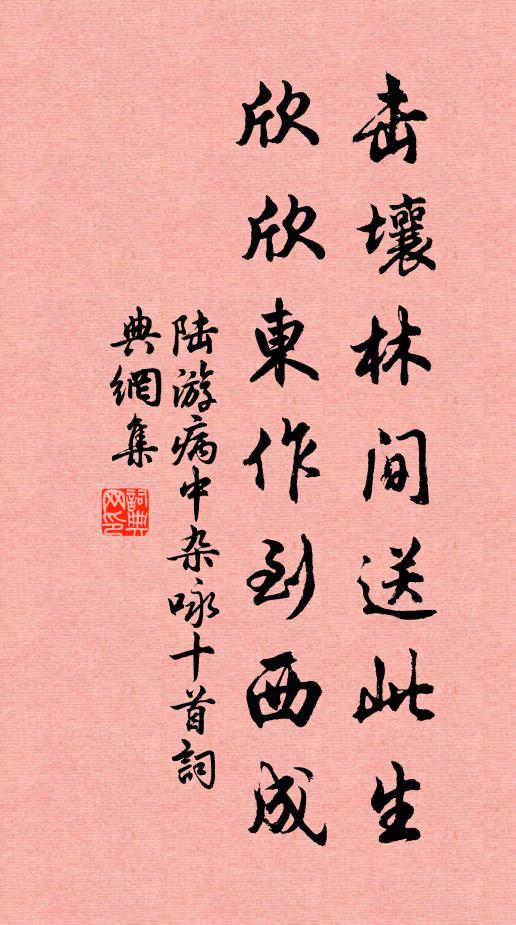 击壤林间送此生
欣欣東作到西成
陆游病中杂咏十首詞
典網集
詞典網印